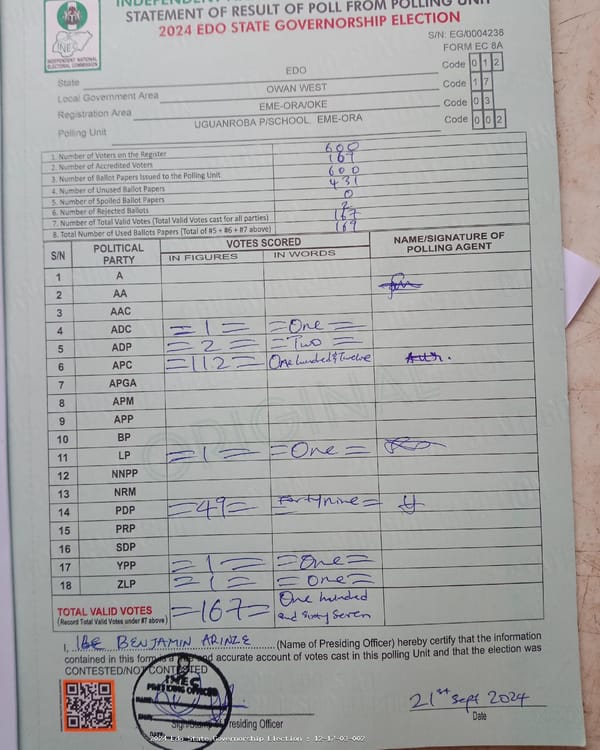 INDEPENDENT
STATEMENT OF RESULT OF POLL FROM POLLING UNIT
2024 EDO STATE GOVERNORSHIP ELECTION
INEC
INDEPENDENT NATIONAL ELECTORAL COMMISSION
S/N: EG/0004238
FORM EC 8A
State EDO Code 0 1 2
Local Government Area OWAN WEST Code 1 7
Registration Area EME-ORA/OKE Code 0 3
Polling Unit UGUANROBA P/SCHOOL, EME-ORA Code 0 0 2
1. Number of Voters on the Register 600
2. Number of Accredited Voters 169
3. Number of Ballot Papers Issued to the Polling Unit 600
4. Number of Unused Ballot Papers 431
5. Number of Spoiled Ballot Papers 0
6. Number of Rejected Ballots 2
7. Number of Total Valid Votes (Total Valid Votes cast for all parties) 167
8. Total Number of Used Ballots Papers (Total of #5 + #6 + #7 above) 169
S/N POLITICAL PARTY VOTES SCORED NAME/SIGNATURE OF POLLING AGENT
IN FIGURES IN WORDS
1 A
2 AA
3 AAC
4 ADC =1= =One=
5 ADP =2= =Two=
6 APC =112= One hundred & Twelve
7 APGA
8 APM
9 APP
10 BP
11 LP =1= =One=
12 NNPP
13 NRM
14 PDP =49= Forty nine=
15 PRP
16 SDP
17 YPP =1= =One=
18 ZLP =1= =One=
ORIGINAL
TOTAL VALID VOTES =167= One hundred
(Record Total Valid Votes under #7 above) and sixty seven
I, IBE BENJAMIN ARINZE (Name of Presiding Officer) hereby certify that the information
contained in this form is a true and accurate account of votes cast in this polling Unit and that the election was
CONTESTED/NOT CONTESTED
INEC
PRESIDING OFFICER
21st Sept 2024
Sign/Stamp of Presiding Officer Date
2024 Edo State Governorship Election : 12-17-03-002